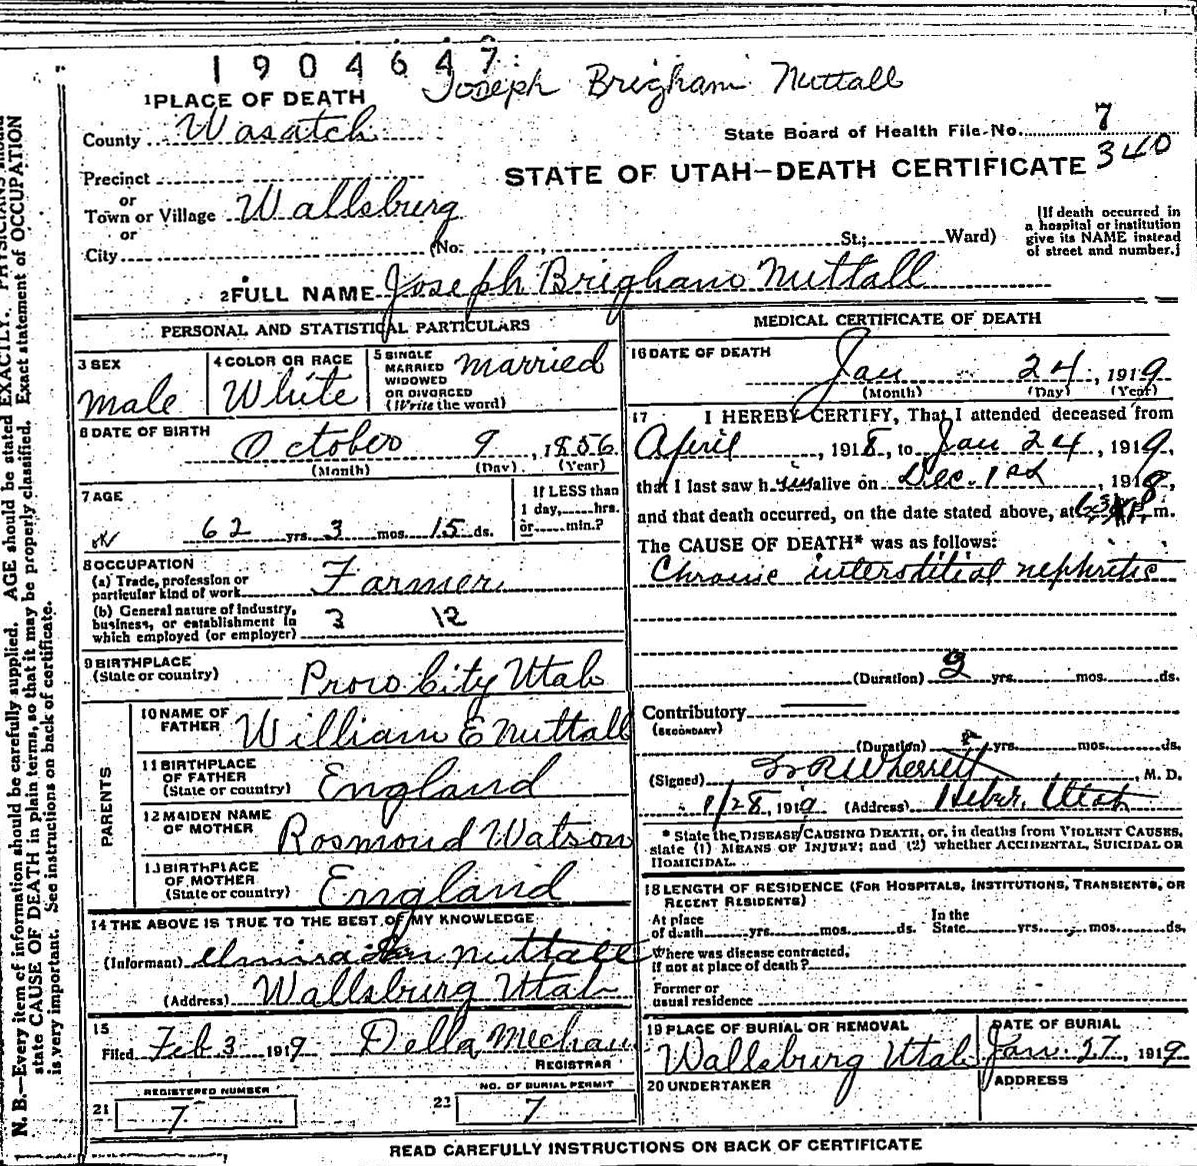 1904647
Joseph Brigham Nuttall
1 PLACE OF DEATH
County Wasatch
State Board of Health File No. 7
340
Precinct
STATE OF UTAH—DEATH CERTIFICATE
or
Town or Village Wallsburg
or
City (No. St.; Ward)
[If death occurred in
a hospital or institution
give its NAME instead
of street and number.]
2 FULL NAME Joseph Brigham Nuttall
PERSONAL AND STATISTICAL PARTICULARS
3 SEX
male
4 COLOR OR RACE
White
5 SINGLE
MARRIED
WIDOWED
OR DIVORCED
(Write the word)
married
6 DATE OF BIRTH
October 9, 1856
(Month) (Day) (Year)
7 AGE
62 yrs. 3 mos. 15 ds.
If LESS than
1 day, hrs.
or min.?
8 OCCUPATION
(a) Trade, profession or
particular kind of work Farmer
(b) General nature of industry,
business, or establishment in
which employed (or employer)
3 12
9 BIRTHPLACE
(State or country)
Provo City Utah
PARENTS
10 NAME OF
FATHER
William E Nuttall
11 BIRTHPLACE
OF FATHER
(State or country)
England
12 MAIDEN NAME
OF MOTHER
Rosmond Watson
13 BIRTHPLACE
OF MOTHER
(State or country)
England
14 THE ABOVE IS TRUE TO THE BEST OF MY KNOWLEDGE
(Informant) Nuttall
(Address) Wallsburg Utah
15
Filed Feb 3 1919 Della Mecham
REGISTRAR
REGISTERED NUMBER
21 7
NO. OF BURIAL PERMIT
23 7
MEDICAL CERTIFICATE OF DEATH
16 DATE OF DEATH
Jan 24, 1919
(Month) (Day) (Year)
17 I HEREBY CERTIFY, That I attended deceased from
April, 1918, to Jan 24, 1919,
that I last saw him alive on Dec. 1st, 1918,
and that death occurred, on the date stated above, at m.
The CAUSE OF DEATH* was as follows:
Chronic interstitial nephritis
(Duration) yrs. mos. ds.
Contributory
(SECONDARY)
(Duration) yrs. mos. ds.
(Signed) Wherritt, M. D.
1/28, 1919 (Address) Heber, Utah
* State the DISEASE CAUSING DEATH, or, in deaths from VIOLENT CAUSES,
state (1) MEANS OF INJURY; and (2) whether ACCIDENTAL, SUICIDAL OR
HOMICIDAL.
18 LENGTH OF RESIDENCE (FOR HOSPITALS, INSTITUTIONS, TRANSIENTS, OR
RECENT RESIDENTS)
At place
of death yrs. mos. ds.
In the
State yrs. mos. ds.
Where was disease contracted,
if not at place of death?
Former or
usual residence
19 PLACE OF BURIAL OR REMOVAL
Wallsburg Utah
DATE OF BURIAL
Jan. 27, 1919
20 UNDERTAKER
ADDRESS
READ CAREFULLY INSTRUCTIONS ON BACK OF CERTIFICATE
N. B.—Every item of information should be carefully supplied. AGE should be stated EXACTLY. PHYSICIANS should
state CAUSE OF DEATH in plain terms, so that it may be properly classified. Exact statement of OCCUPATION
is very important. See instructions on back of certificate.